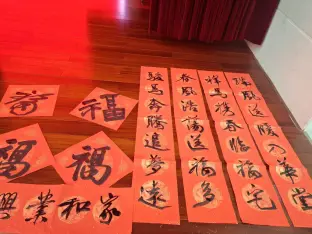 駿馬奔騰追夢遠
春風浩蕩送福多
祥馬攜春臨福宅
入華堂
福
福
福
家和業興